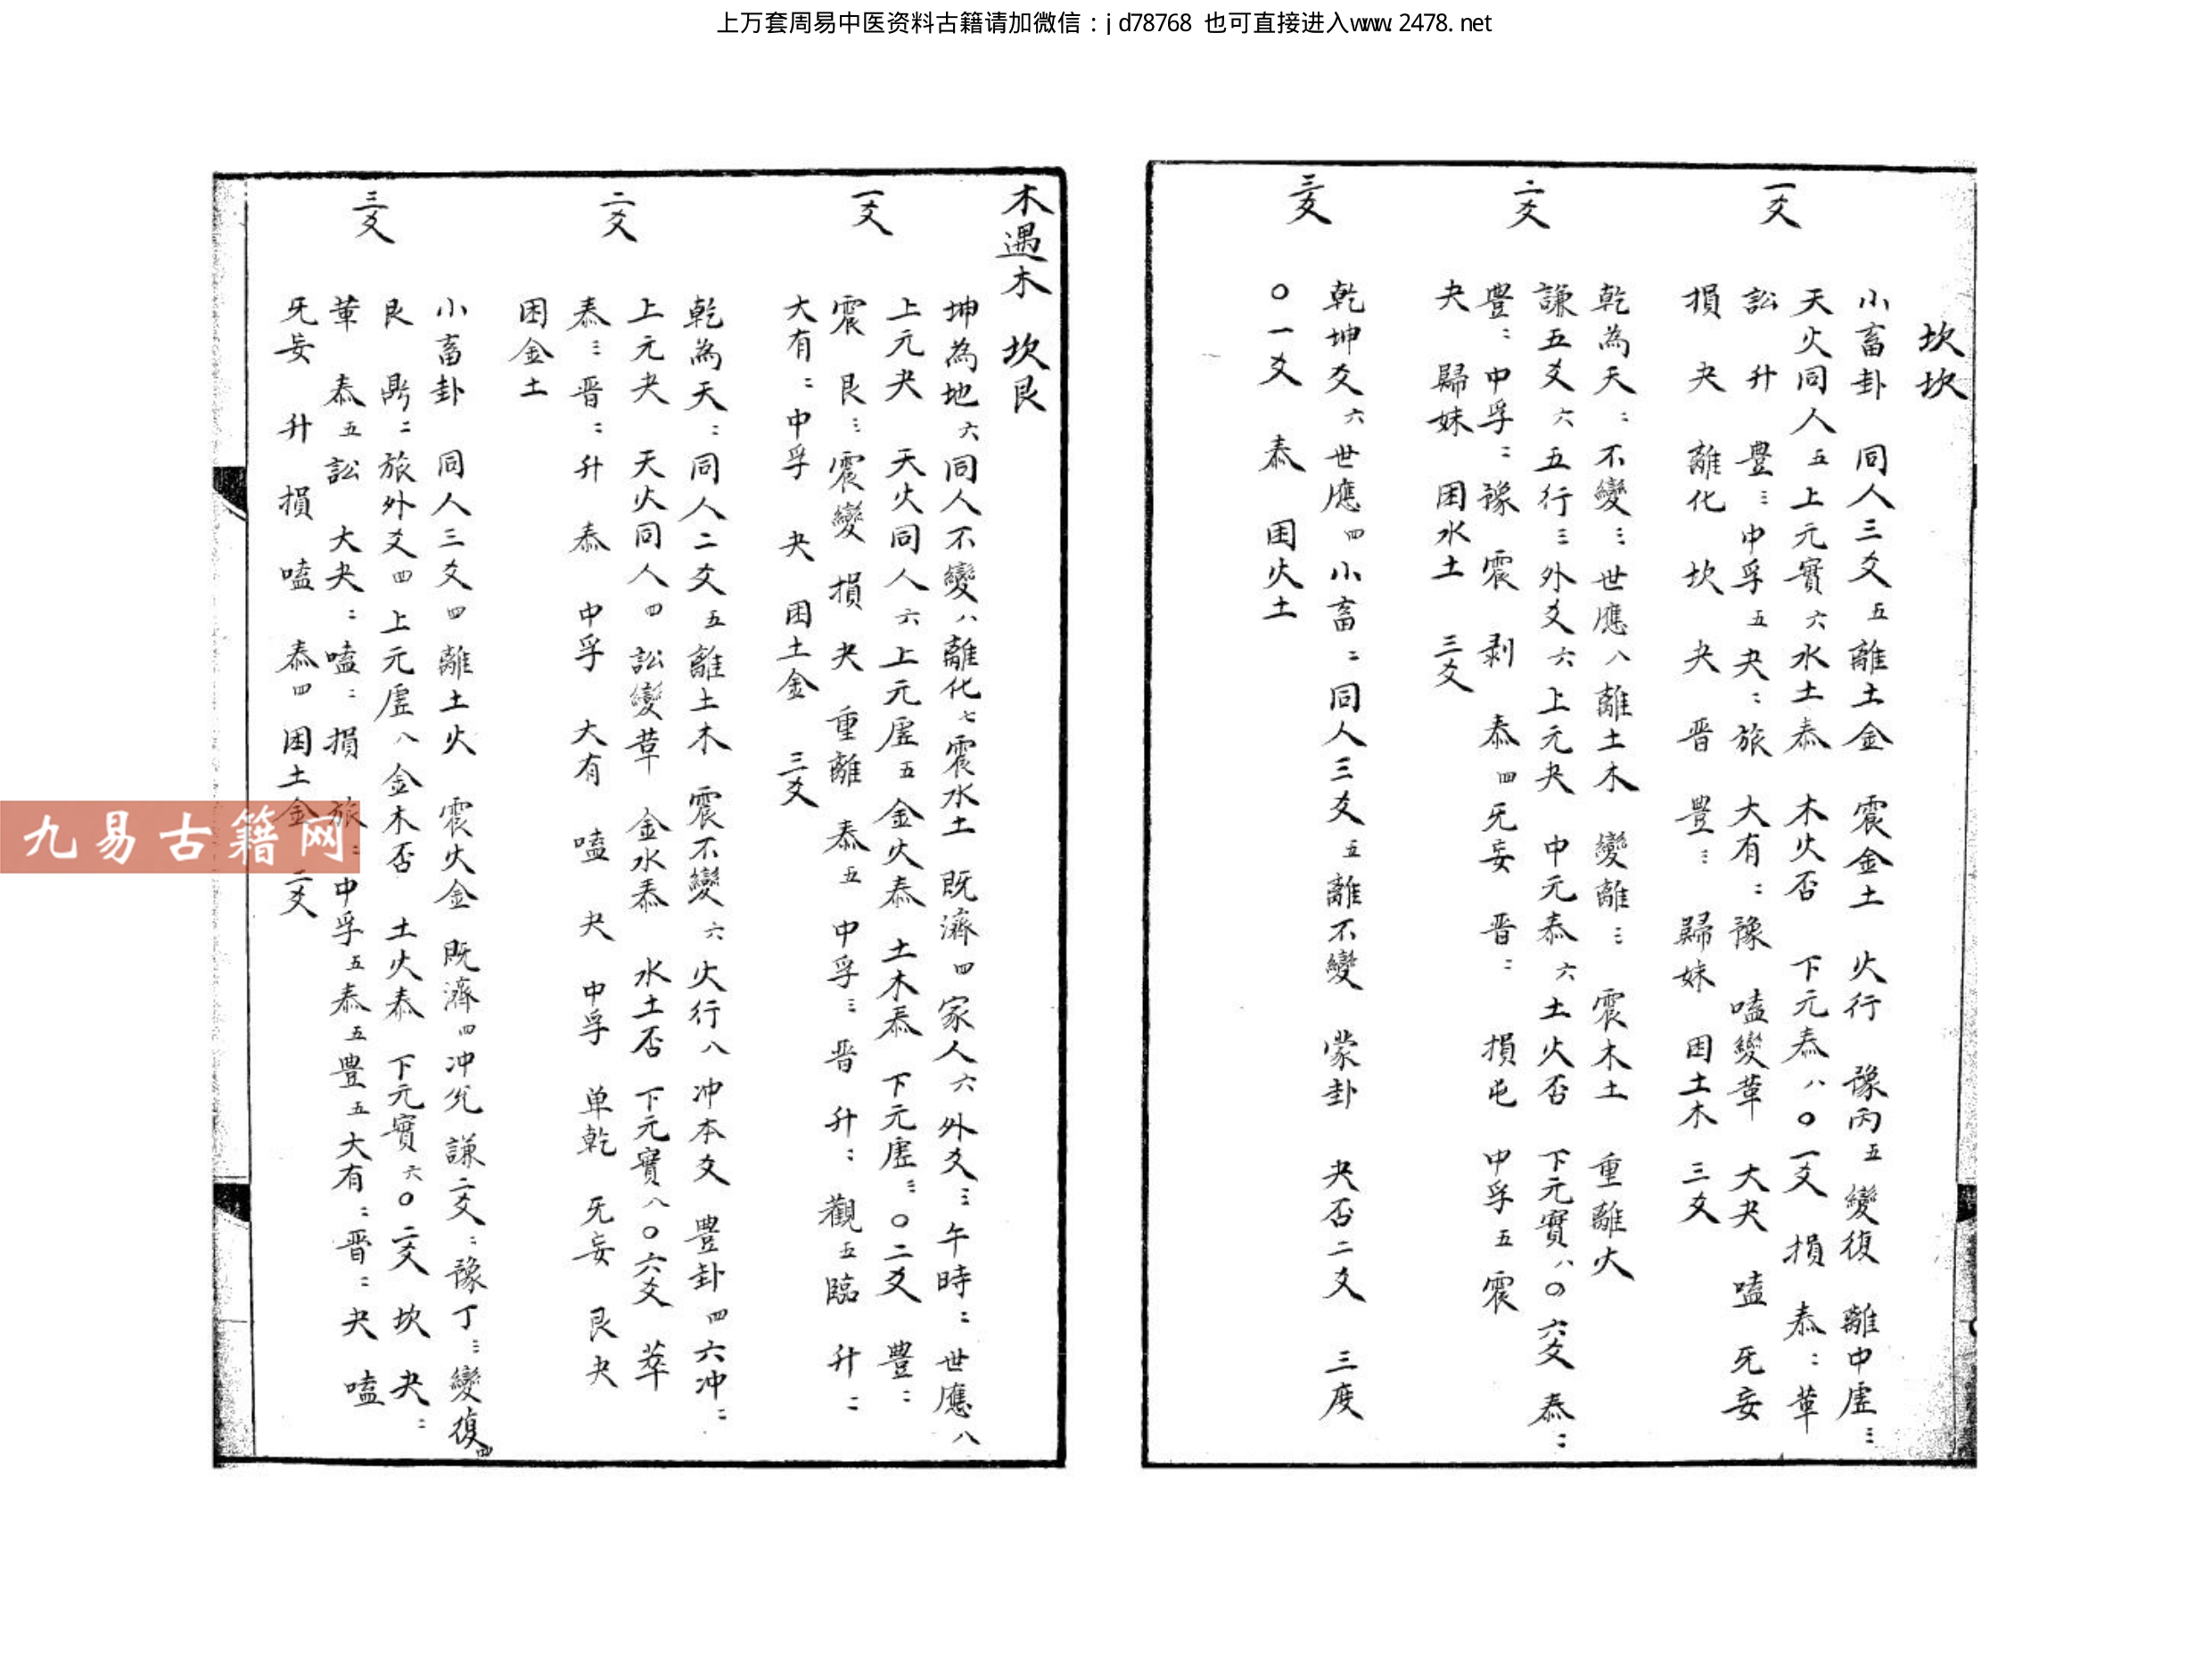 上万套周易中医资料古籍请加微信：jd78768 也可直接进入www.2478.net
坎坎
一爻
小畜卦 同人三爻五離土金 震金土 火行 豫丙五變復 離中虛三
天火同人五上元實六水土泰 木火否 下元泰八〇一爻 損 泰二革
訟 升 豐三中孚五夬二旅 大有二豫 嗑變革 大夬 嗑 旡妄
損 夬 離化 坎 夬 晋 豐三 歸妹 困土木 三爻
二爻
乾為天二不變三世應八離土木 變離三 震木土 重離火
謙五爻六五行三外爻六上元夬 中元泰六土火否 下元實八〇六爻 泰二
豐二中孚二豫 震 剥 泰四旡妄 晋二 損屯 中孚五震
夬 歸妹 困水土 三爻
三爻
乾坤爻六世應四小畜二同人三爻五離不變 蒙卦 夬否二爻 三度
〇一爻 泰 困火土
木遇木 坎艮
一爻
坤為地六同人不變八離化七震水土 既濟四家人六外爻三午時二世應八
上元夬 天火同人六上元虛五金火泰 土木泰 下元虛三〇二爻 豐二
震 艮三震變 損 夬 重離 泰五中孚三晋 升二觀五臨 升二
大有二中孚 夬 困土金 三爻
二爻
乾為天二同人二爻五離土木 震不變六火行八冲本爻 豐卦四六冲二
上元夬 天火同人四訟變革 金水泰 水土否 下元實八〇六爻 萃
泰三晋二升 泰 中孚 大有 嗑 夬 中孚 单乾 旡妄 艮夬
困金土
三爻
小畜卦 同人三爻四離土火 震火金 既濟四冲兊 謙二爻二豫丁三變復四
艮 鼎二旅外爻四上元虛八金木否 土火泰 下元實六〇二爻 坎 夬二
革 泰五訟 大夬二嗑二損 旅二中孚五泰五豐五大有二晋二夬 嗑
旡妄 升 損 嗑 泰四 困土金 二爻
九易古籍网